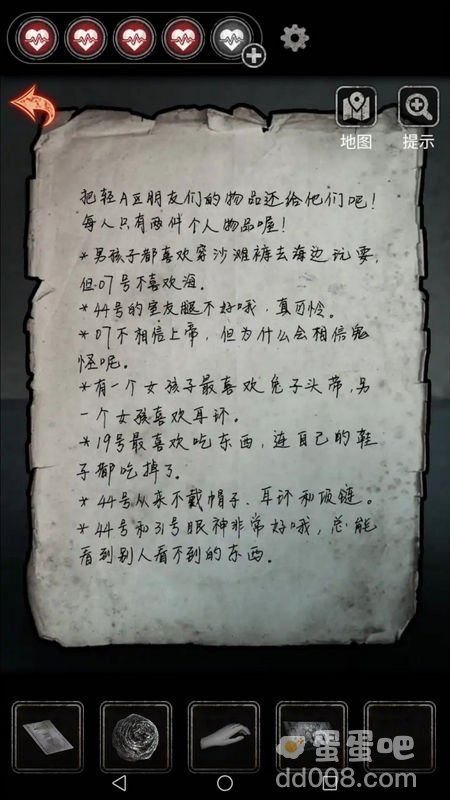 地图
提示
把轻A豆朋友们的物品还给他们吧!
每人只有两件个人物品喔!
*男孩子都喜欢穿沙滩裤去海边玩耍,
但07号不喜欢海。
*44号的室友腿不好哦,真可怜。
*07不相信上帝,但为什么会相信鬼
怪呢。
*有一个女孩子最喜欢兔子头带,另
一个女孩喜欢耳环。
*19号最喜欢吃东西,连自己的鞋
子都吃掉了。
*44号从来不戴帽子、耳环和项链。
*44号和31号眼神非常好哦,总能
看到别人看不到的东西。
蛋蛋吧
dd008.com